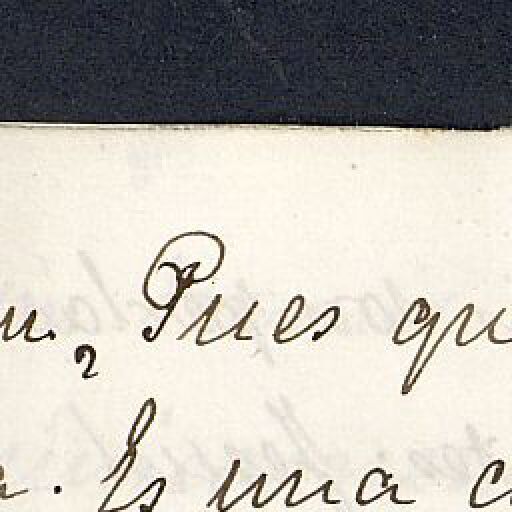 Pues qu
. Es una c